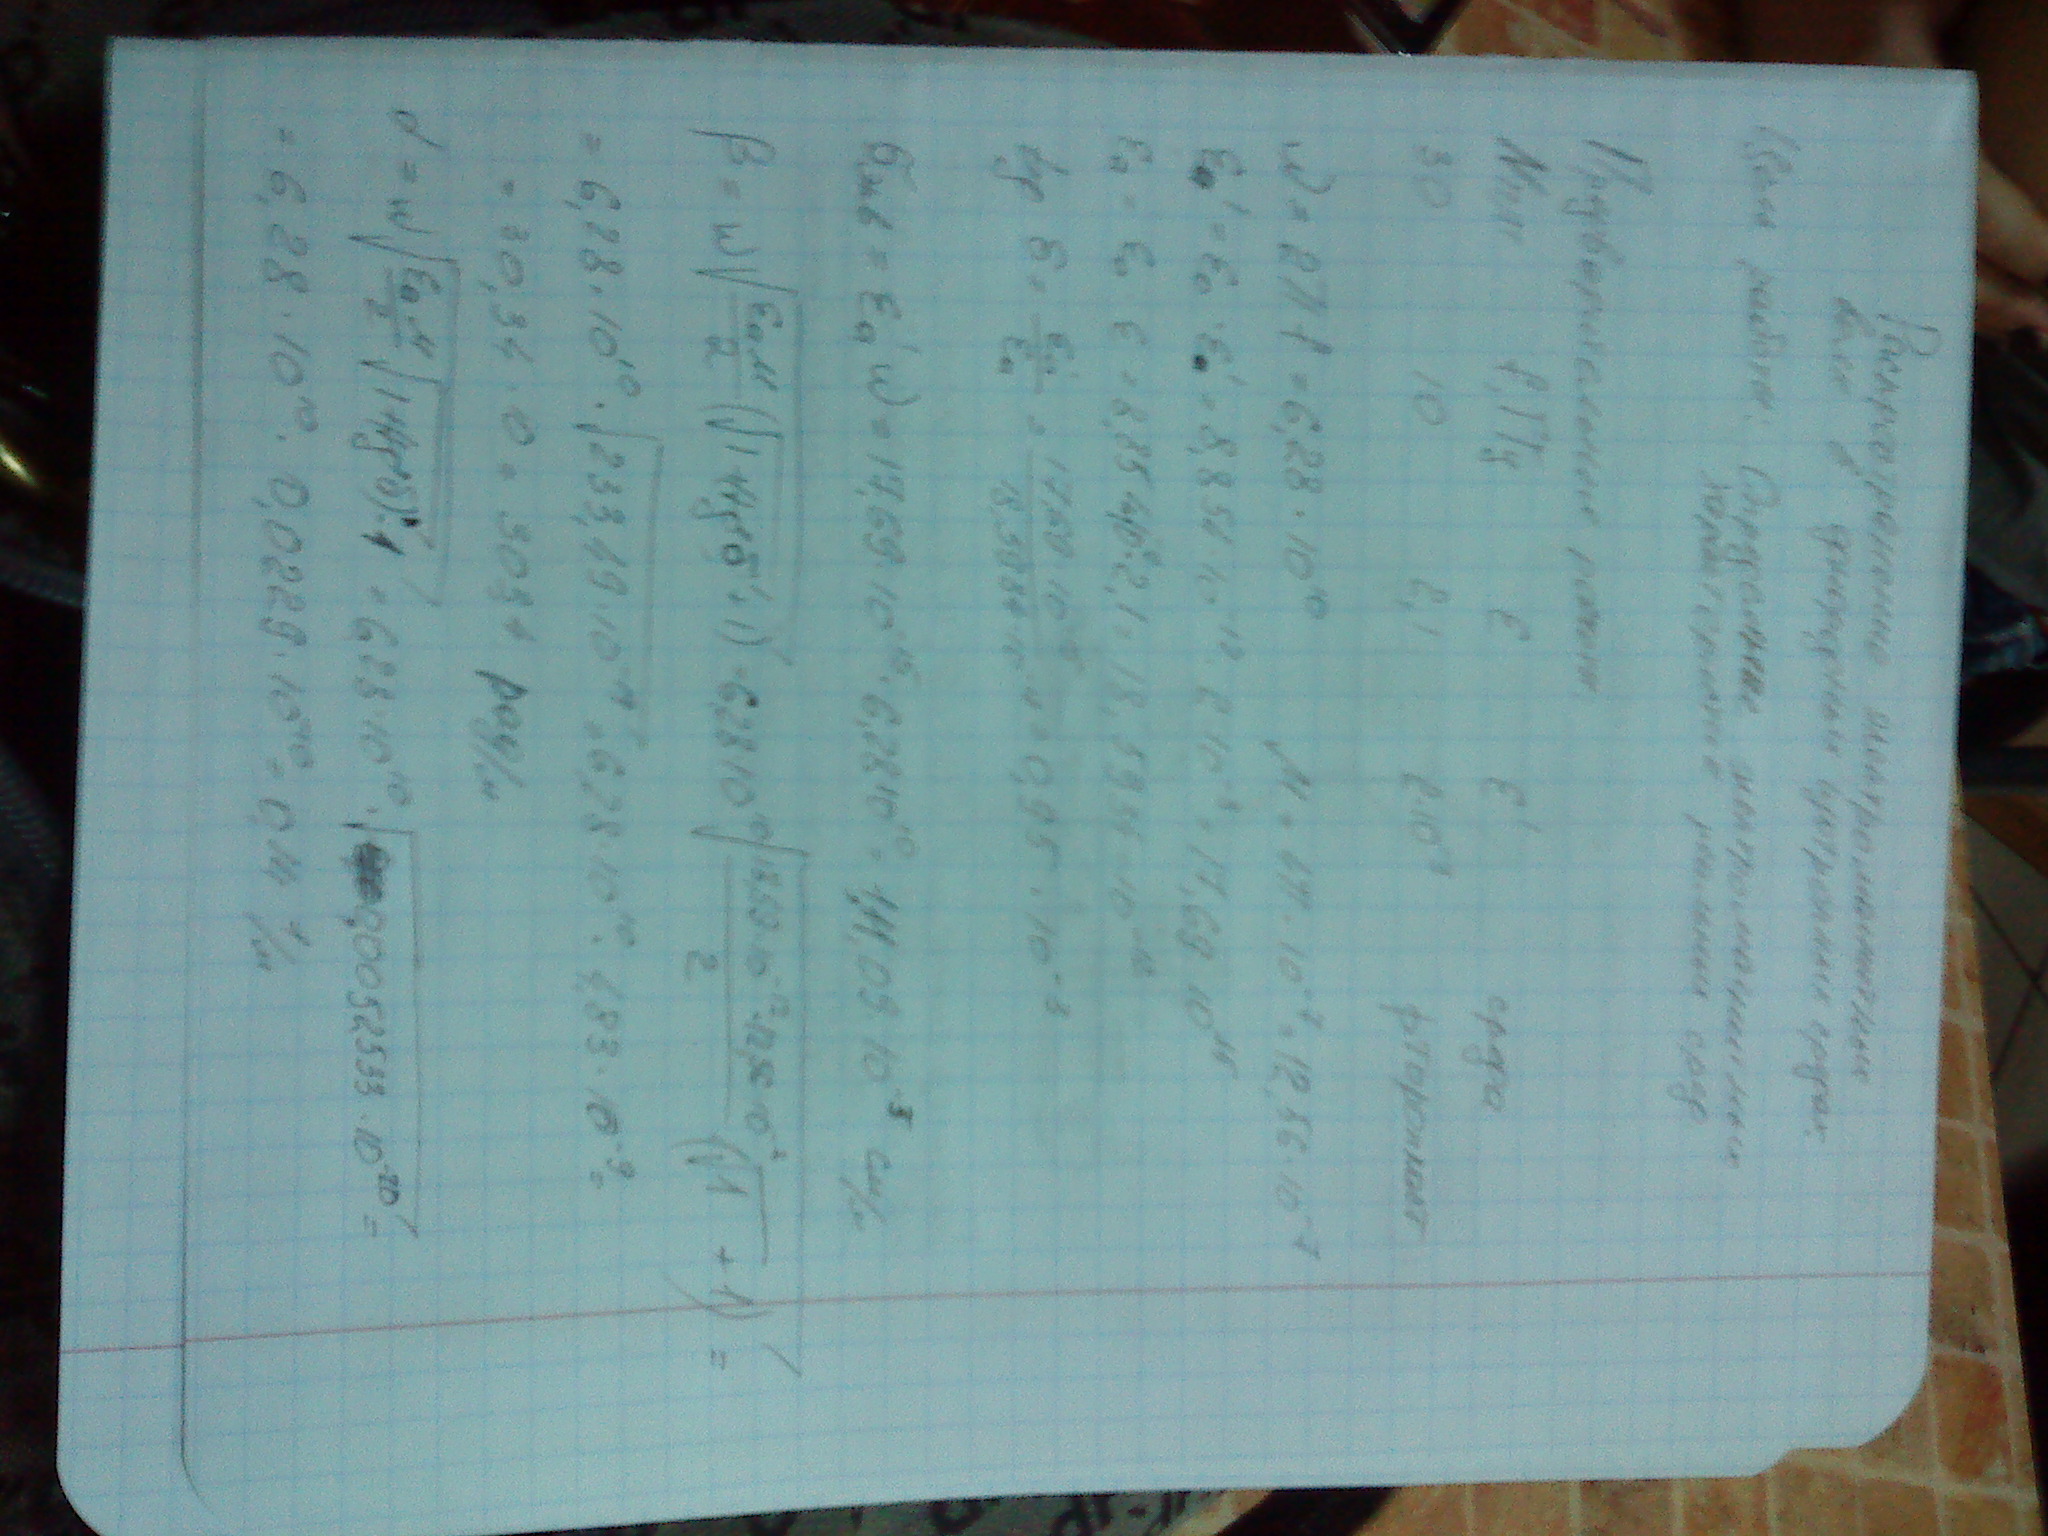 Распространение электромагнитных
волн в однородных изотропных средах.
Цель работы: Определение электромагнитных
характеристик реальных сред
Предварительный расчет.
Nпп f,ГГц ε ε' среда
30 10 2,1 2·10⁻³ фторопласт
ω = 2πf = 6,28·10¹⁰ μ = 4π·10⁻⁷ = 12,56·10⁻⁷
εa' = ε0·ε' = 8,854·10⁻¹²·2·10⁻³ = 17,69·10⁻¹⁵
εa = ε0·ε = 8,854·10⁻¹²·2,1 = 18,5934·10⁻¹²
tgδ = εa'/εa = 17,69·10⁻¹⁵ / 18,5934·10⁻¹² = 0,95·10⁻³
= εa'ω = 17,69·10⁻¹⁵·6,28·10¹⁰ = 1,1109·10⁻³ см/м
β = ω√(εaμ/2 (√1+tg²δ + 1)) = 6,28·10¹⁰ √(18,59·10⁻¹²·12,56·10⁻⁷/2 (√1 + 1)) =
= 6,28·10¹⁰·√233,49·10⁻¹⁹ = 6,28·10¹⁰·4,83·10⁻⁹ =
= 30,34·10 = 303,4 рад/м
α = ω√(εa·μ/2 √(1+tg²δ)-1) = 6,28·10¹⁰·√0,00052533·10⁻²⁰ =
= 6,28·10¹⁰·0,0229·10⁻¹⁰ = 0,14 1/м